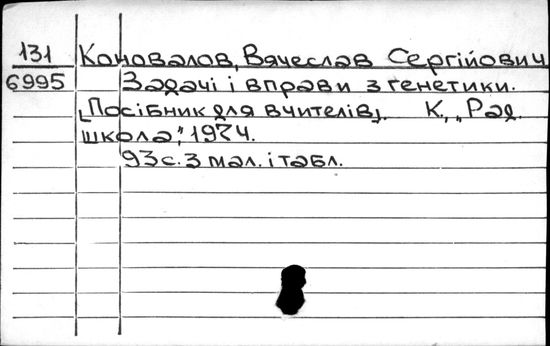 131 Коновалов, Вячеслав Сергійович
6995 Задачі і вправи з генетики.
[Посібник для вчителів]. К., „Рад.
школа", 1974.
93 с. з мал. і табл.